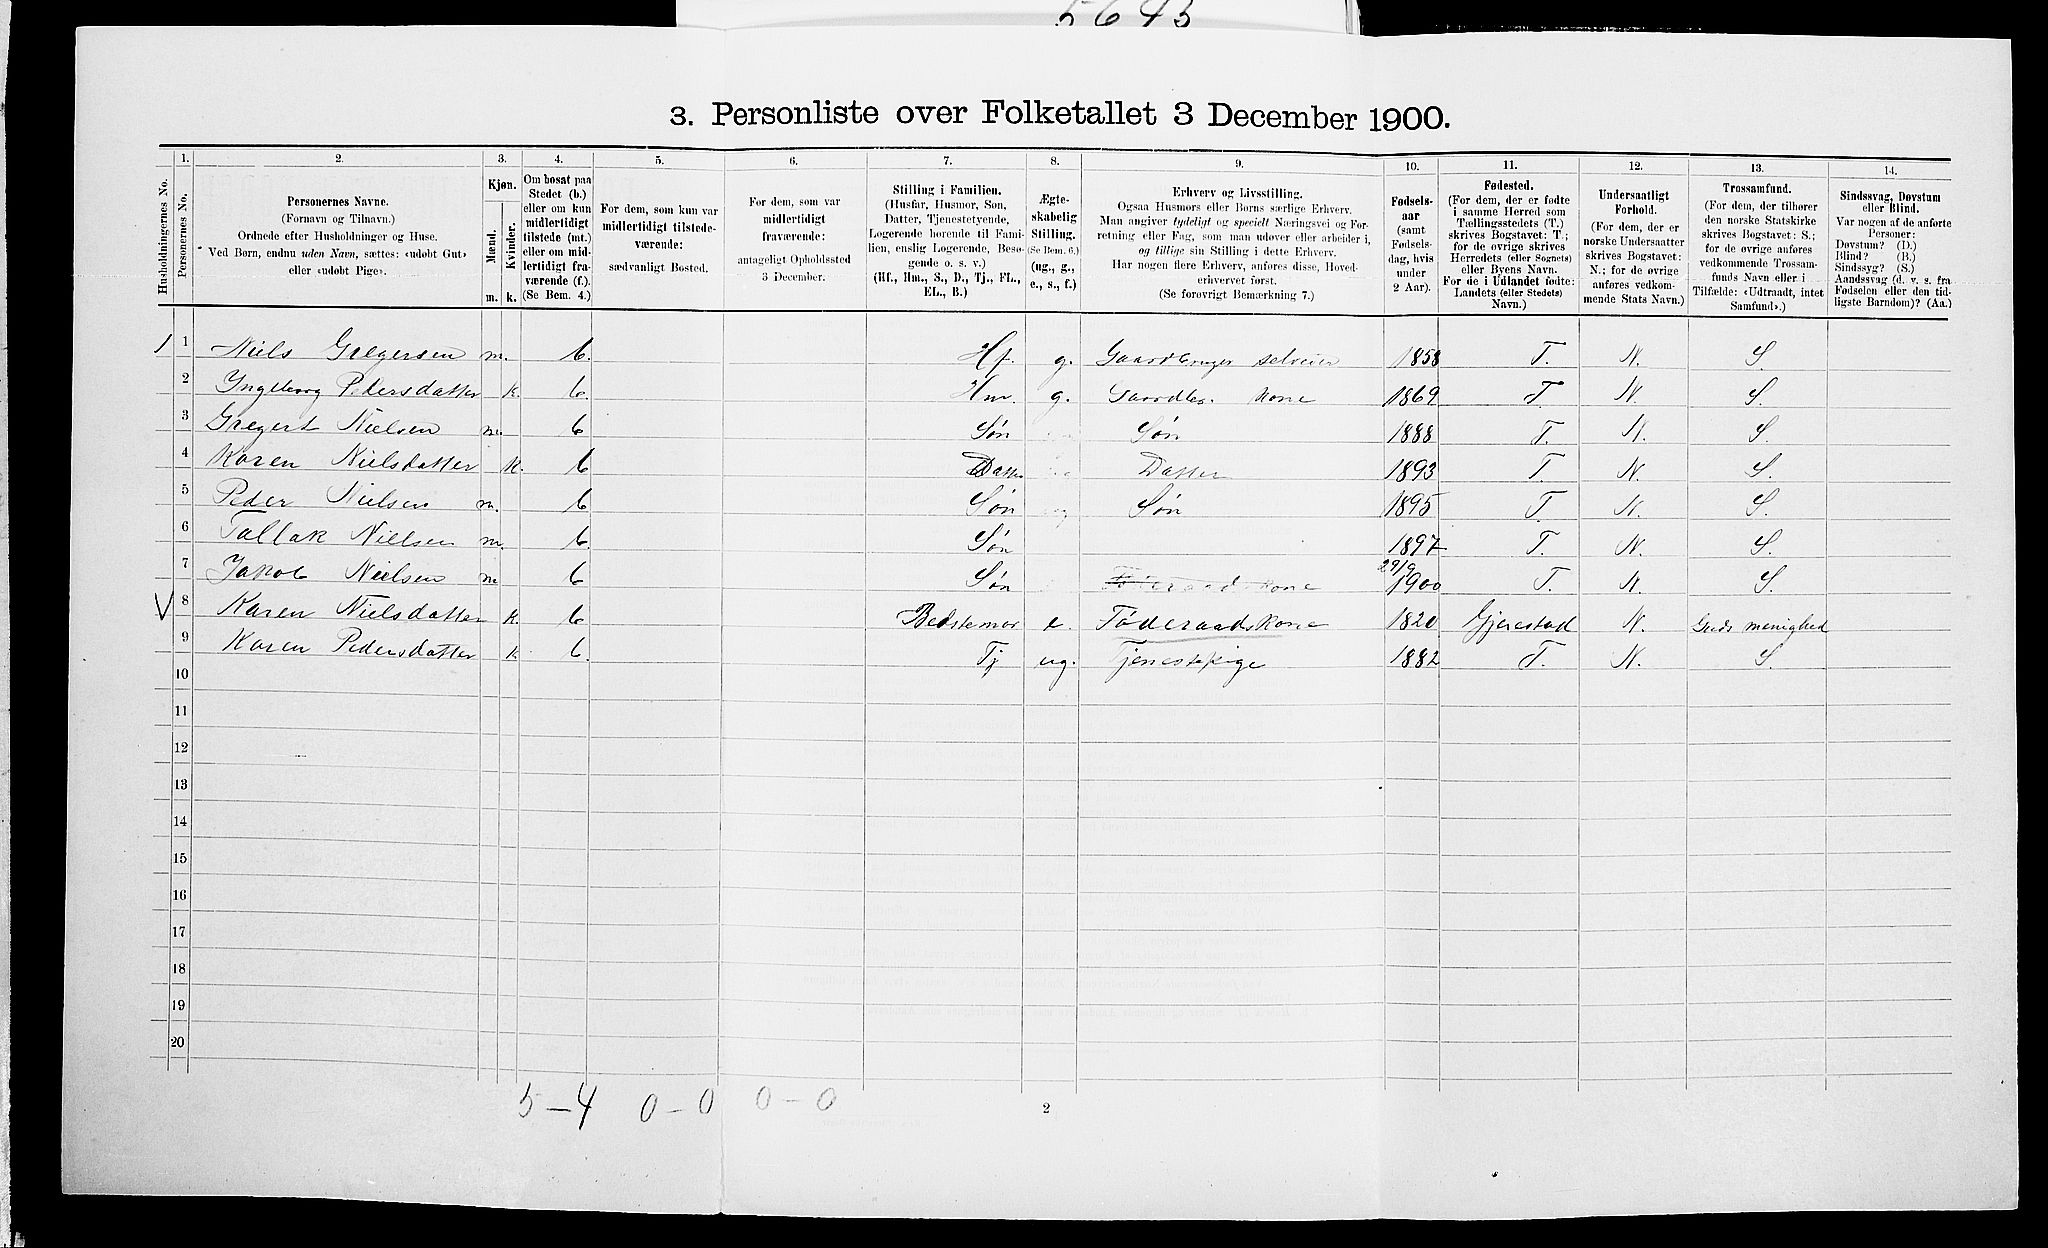 5643
3. Personliste over Folketallet 3 December 1900.
1. 2. 3. 4. 5. 6. 7. 8. 9. 10. 11. 12. 13. 14.
Husholdningernes No.
Personernes No.
Personernes Navne.
(Fornavn og Tilnavn.)
Ordnede efter Husholdninger og Huse.
Ved Børn, endnu uden Navn, sættes: «udøbt Gut»
eller «udøbt Pige».
Kjøn.
Mænd.
Kvinder.
m. k.
Om bosat paa
Stedet (b.)
eller om kun
midlertidigt
tilstede (mt.)
eller om mid-
lertidigt fra-
værende (f.).
(Se Bem. 4.)
For dem, som kun var
midlertidigt tilstede-
værende:
sædvanligt Bosted.
For dem, som var
midlertidigt
fraværende:
antageligt Opholdssted
3 December.
Stilling i Familien.
(Husfar, Husmor, Søn,
Datter, Tjenestetyende,
Logerende hørende til Fami-
lien, enslig Logerende, Besø-
gende o. s. v.)
(Hf., Hm., S., D., Tj., FL.,
EL., B.)
Ægte-
skabelig
Stilling.
(Se Bem. 6.)
(ug., g.,
e., s., f.)
Erhverv og Livsstilling.
Ogsaa Husmors eller Børns særlige Erhverv.
Man angiver tydeligt og specielt Næringsvei og For-
retning eller Fag, som man udøver eller arbeider i,
og tillige sin Stilling i dette Erhverv.
Har nogen flere Erhverv, anføres disse, Hoved-
erhvervet først.
(Se forøvrigt Bemærkning 7.)
Fødsels-
aar
(samt
Fødsels-
dag, hvis
under
2 Aar).
Fødested.
(For dem, der er fødte
i samme Herred som
Tællingsstedets (T.)
skrives Bogstavet: T.;
for de øvrige skrives
Herredets (eller Sognets)
eller Byens Navn.
For de i Udlandet fødte:
Landets (eller Stedets)
Navn.)
Undersaatligt
Forhold.
(For dem, der er
norske Undersaatter
skrives Bogstavet:
N.; for de øvrige
anføres vedkom-
mende Stats Navn.)
Trossamfund.
(For dem, der tilhører
den norske Statskirke
skrives Bogstavet: S.;
for de øvrige anføres
vedkommende Trossam-
funds Navn eller i
Tilfælde: «Udtraadt, intet
Samfund».)
Sindssvag, Døvstum
eller Blind.
Var nogen af de anførte
Personer:
Døvstum? (D.)
Blind? (B.)
Sindssyg? (S.)
Aandssvag (d. v. s. fra
Fødselen eller den tid-
ligste Barndom)? (Aa.)
1 1 Niels Gregersen m. b. Hf. g. Gaardbruger selveier 1858 T. N. S.
2 Ingeborg Pedersdatter k. b. Hm. g. Gaardbr. kone 1869 T. N. S.
3 Gregert Nielsen m. b Søn Søn 1888 T. N. S.
4 Karen Nielsdatter k. b Datter Datter 1893 T. N. S.
5 Peder Nielsen m. b Søn Søn 1895 T. N. S.
6 Tallak Nielsen m. b. Søn 1897 T. N. S.
7 Jakob Nielsen m b Søn Føderaadskone 29/9 1900 T. N. S.
8 Karen Nielsdatter k. b Bedstemor e. Føderaadskone 1820 Gjerestad N. Guds menighed
9 Karen Pedersdatter k b. Tj ug. Tjenestepige 1882 T. N. S.
10
11
12
13
14
15
16
17
18
19
20
5-4 0-0 0-0
2